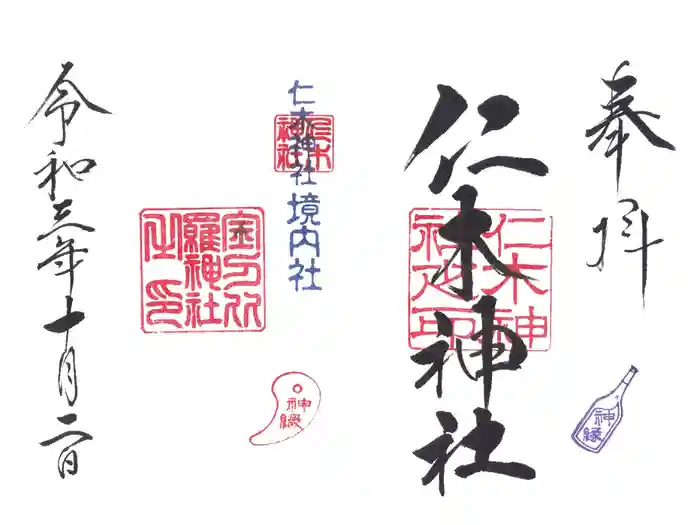 奉拝
神縁
仁木神社
仁木神社之印
仁木神社境内社
仁木神社
神縁
令和三年十月二日